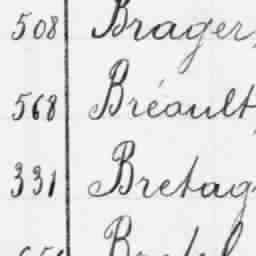 508 Brager,
568 Bréault,
331 Bretag